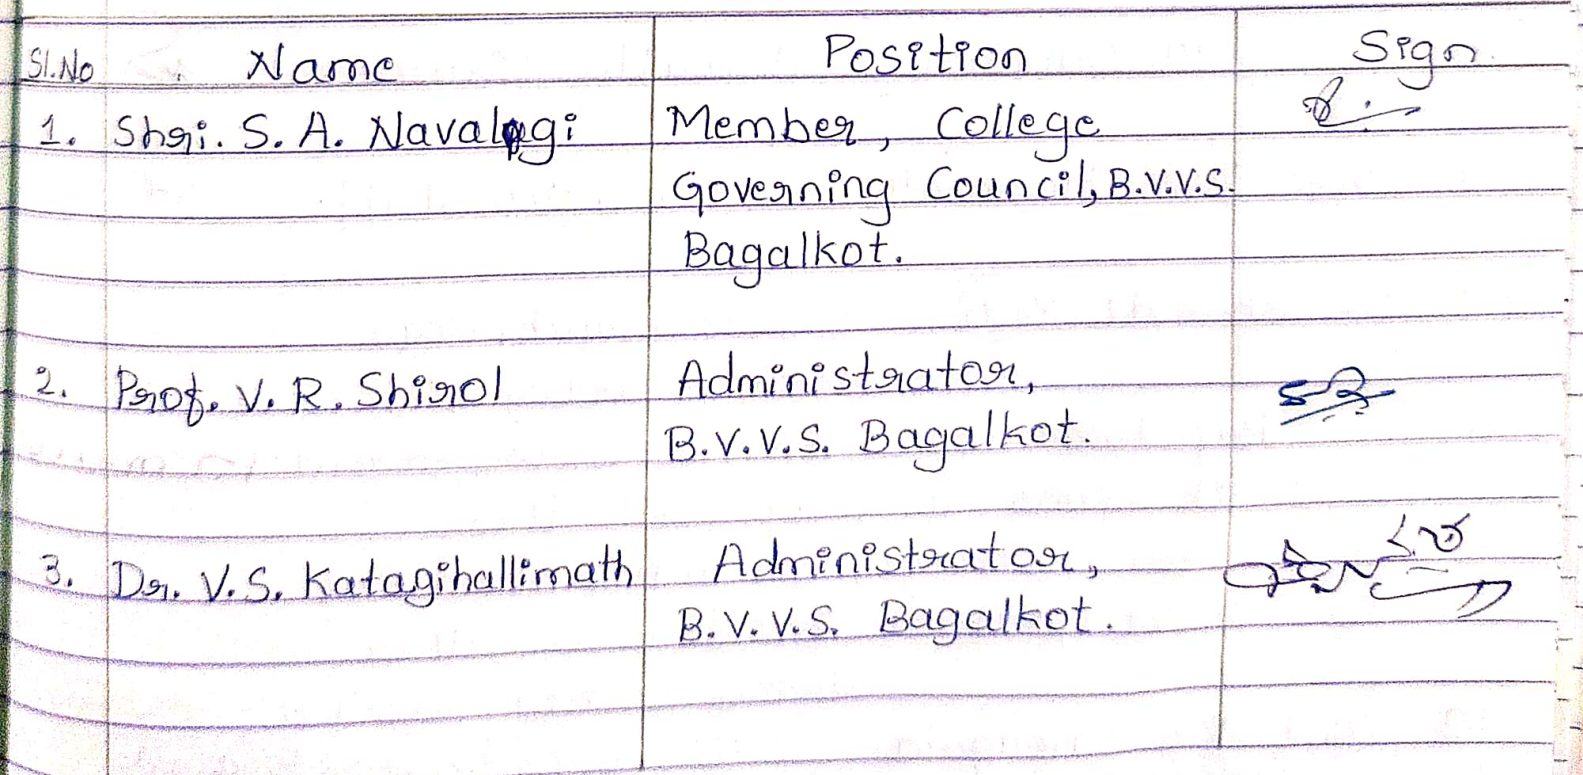 Sl.No Name Position Sign
1. Shri. S. A. Navalagi Member, College
Governing Council, B.V.V.S.
Bagalkot.
2. Prof. V. R. Shirol Administrator,
B.V.V.S. Bagalkot.
3. Dr. V.S. Katagihallimath Administrator,
B.V.V.S. Bagalkot.